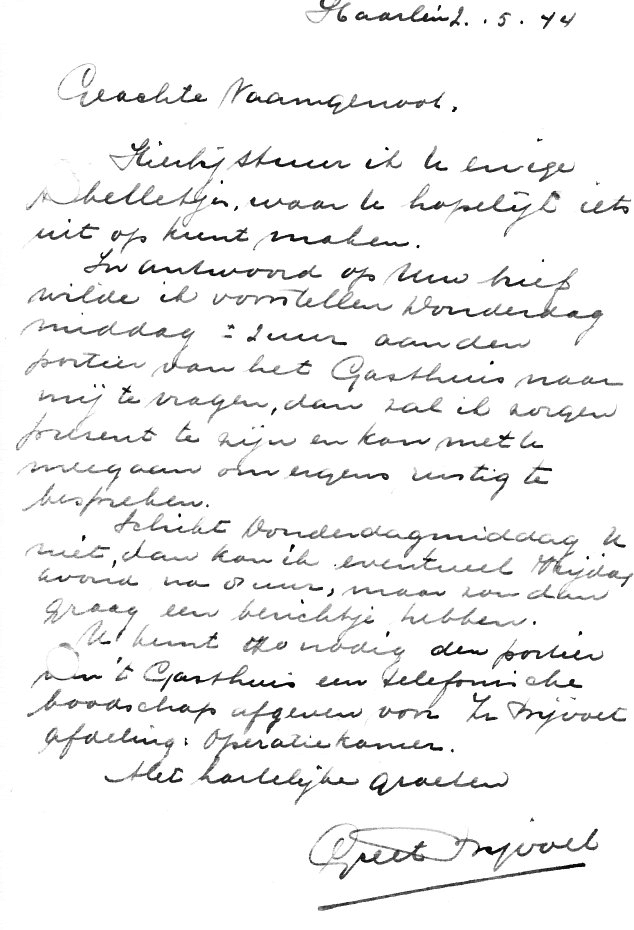 Haarlem 2. . 5. 44
Geachte Naamgenoot,
Hierbij stuur ik U enige
tabelletjes, waar U hopelijk iets
uit op kunt maken.
In antwoord op Uw brief
wilde ik voorstellen Donderdag
middag ± 2 uur aan den
portier van het Gasthuis naar
mij te vragen, dan zal ik zorgen
present te zijn en kan met U
meegaan om ergens rustig te
bespreken.
Schikt Donderdagmiddag U
niet, dan kan ik eventueel Vrijdag
avond na 8 uur, maar zou dan
graag een berichtje hebben.
U kunt zo nodig den portier
van 't Gasthuis een telefonische
boodschap afgeven voor Zr Trijvoet
afdeling: Operatiekamer.
Met hartelijke groeten
Greet Trijvoet